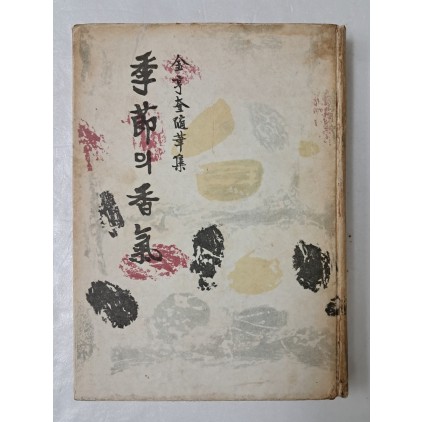 金亨奎隨筆集
季節의香氣